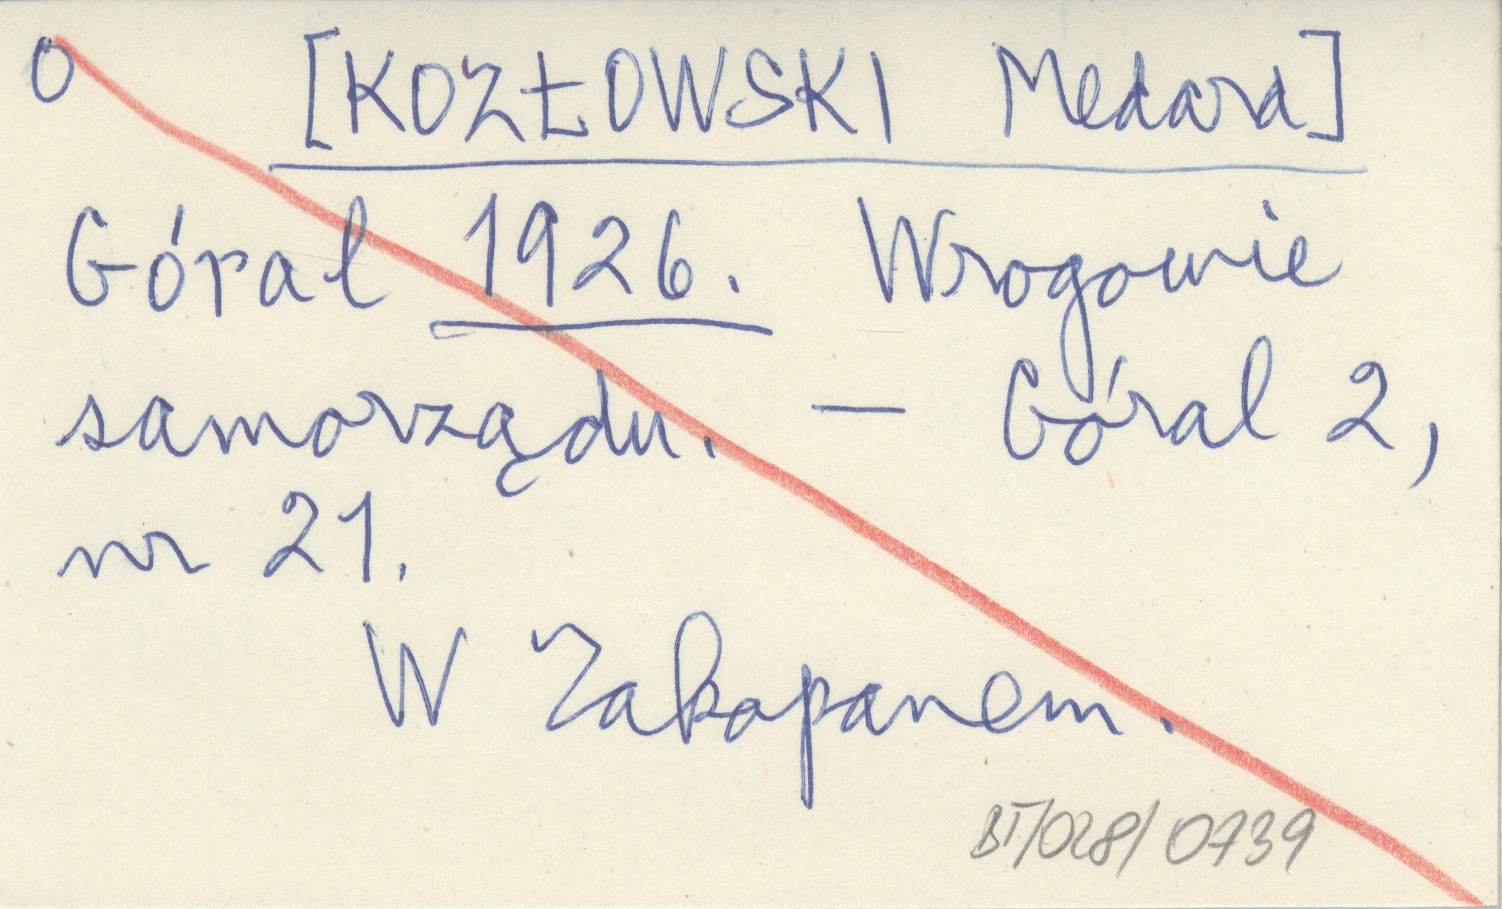 O [KOZŁOWSKI Medard]
Górał 1926. Wrogowie
samorządu. — Góral 2,
nr 21.
W Zakopanem.
BT/028/0739